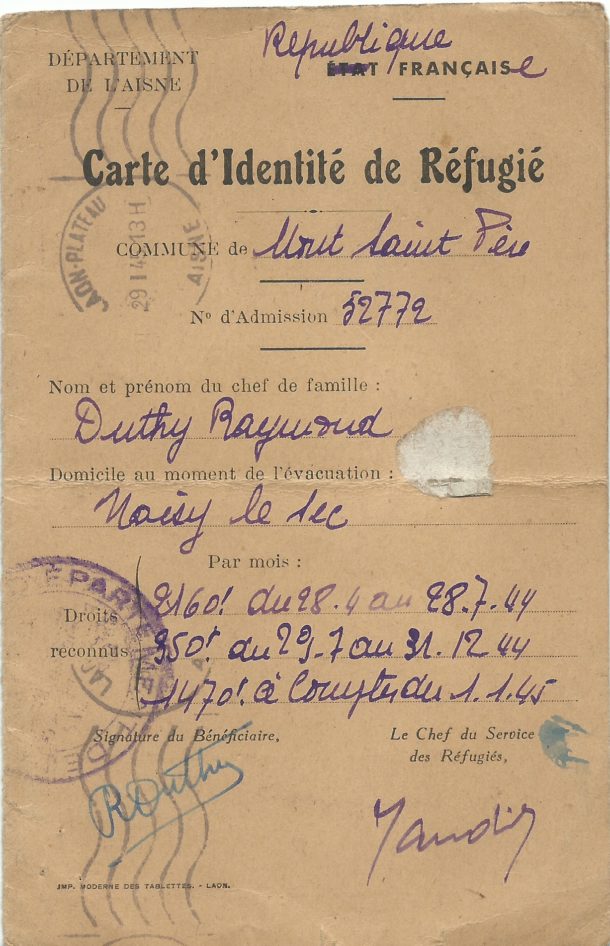 DÉPARTEMENT
DE L'AISNE
Republique
ÉTAT FRANÇAISe
Carte d'Identité de Réfugié
LAON-PLATEAU
29 I 4 13 H
AISNE
COMMUNE de Mont Saint Père
Nº d'Admission 52772
Nom et prénom du chef de famille :
Duthy Raymond
Domicile au moment de l'évacuation :
Noisy le sec
Par mois :
Droits
reconnus
2160f du 28.4 au 28.7.44
950f du 29.7 au 31.12 44
1470f à Compter du 1.1.45
DÉPARTEME
Signature du Bénéficiaire,
Le Chef du Service
des Réfugiés,
RDuthy
IMP. MODERNE DES TABLETTES. - LAON.